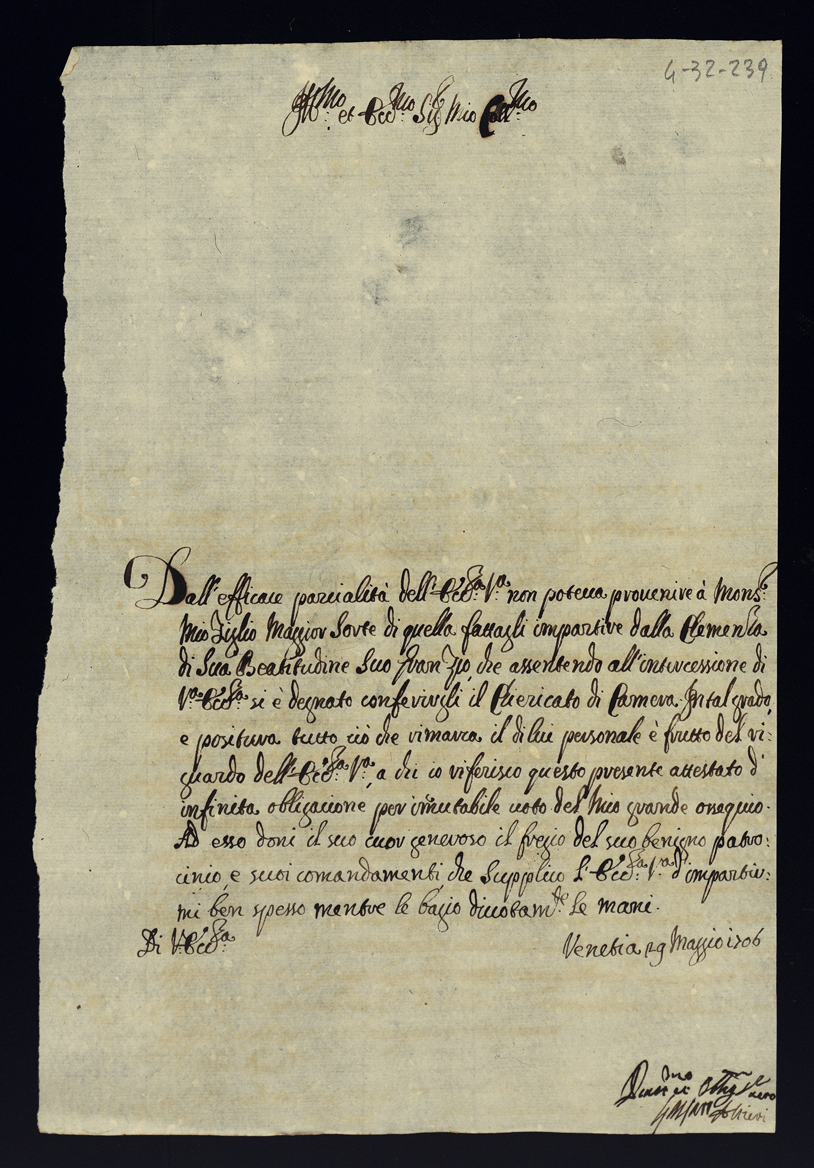 4-32-239
Ill:mo et Ecc:mo Sig:r Mio Col:mo
Dall'efficace parcialità dell'Ecc:za V:a non poteua prouenire à Mons:r
Mio Figlio Maggior Sorte di quella fattagli impartire dalla Clemenza
di Sua Beatitudine Suo gran Zio, che assentendo all'intercessione di
V:a Ecc:za si è degnato conferirgli il Chiericato di Camera. In tal grado,
e positura tutto ciò che rimarca il di lui personale è frutto del ri:
guardo dell'Ecc:za V:a, a chi io riferisco questo presente attestato d'
infinita obligacione per immutabile uoto del Mio grande ossequio.
Ad esso doni il suo cuor generoso il fregio del suo benigno patro:
cinio, e suoi comandamenti, che Supplico L'Ecc:za V:a d'impartir:
mi ben spesso mentre le bagio diuotam:te Le mani.
Di V: Ecc:za
Venetia 29 Maggio 1706